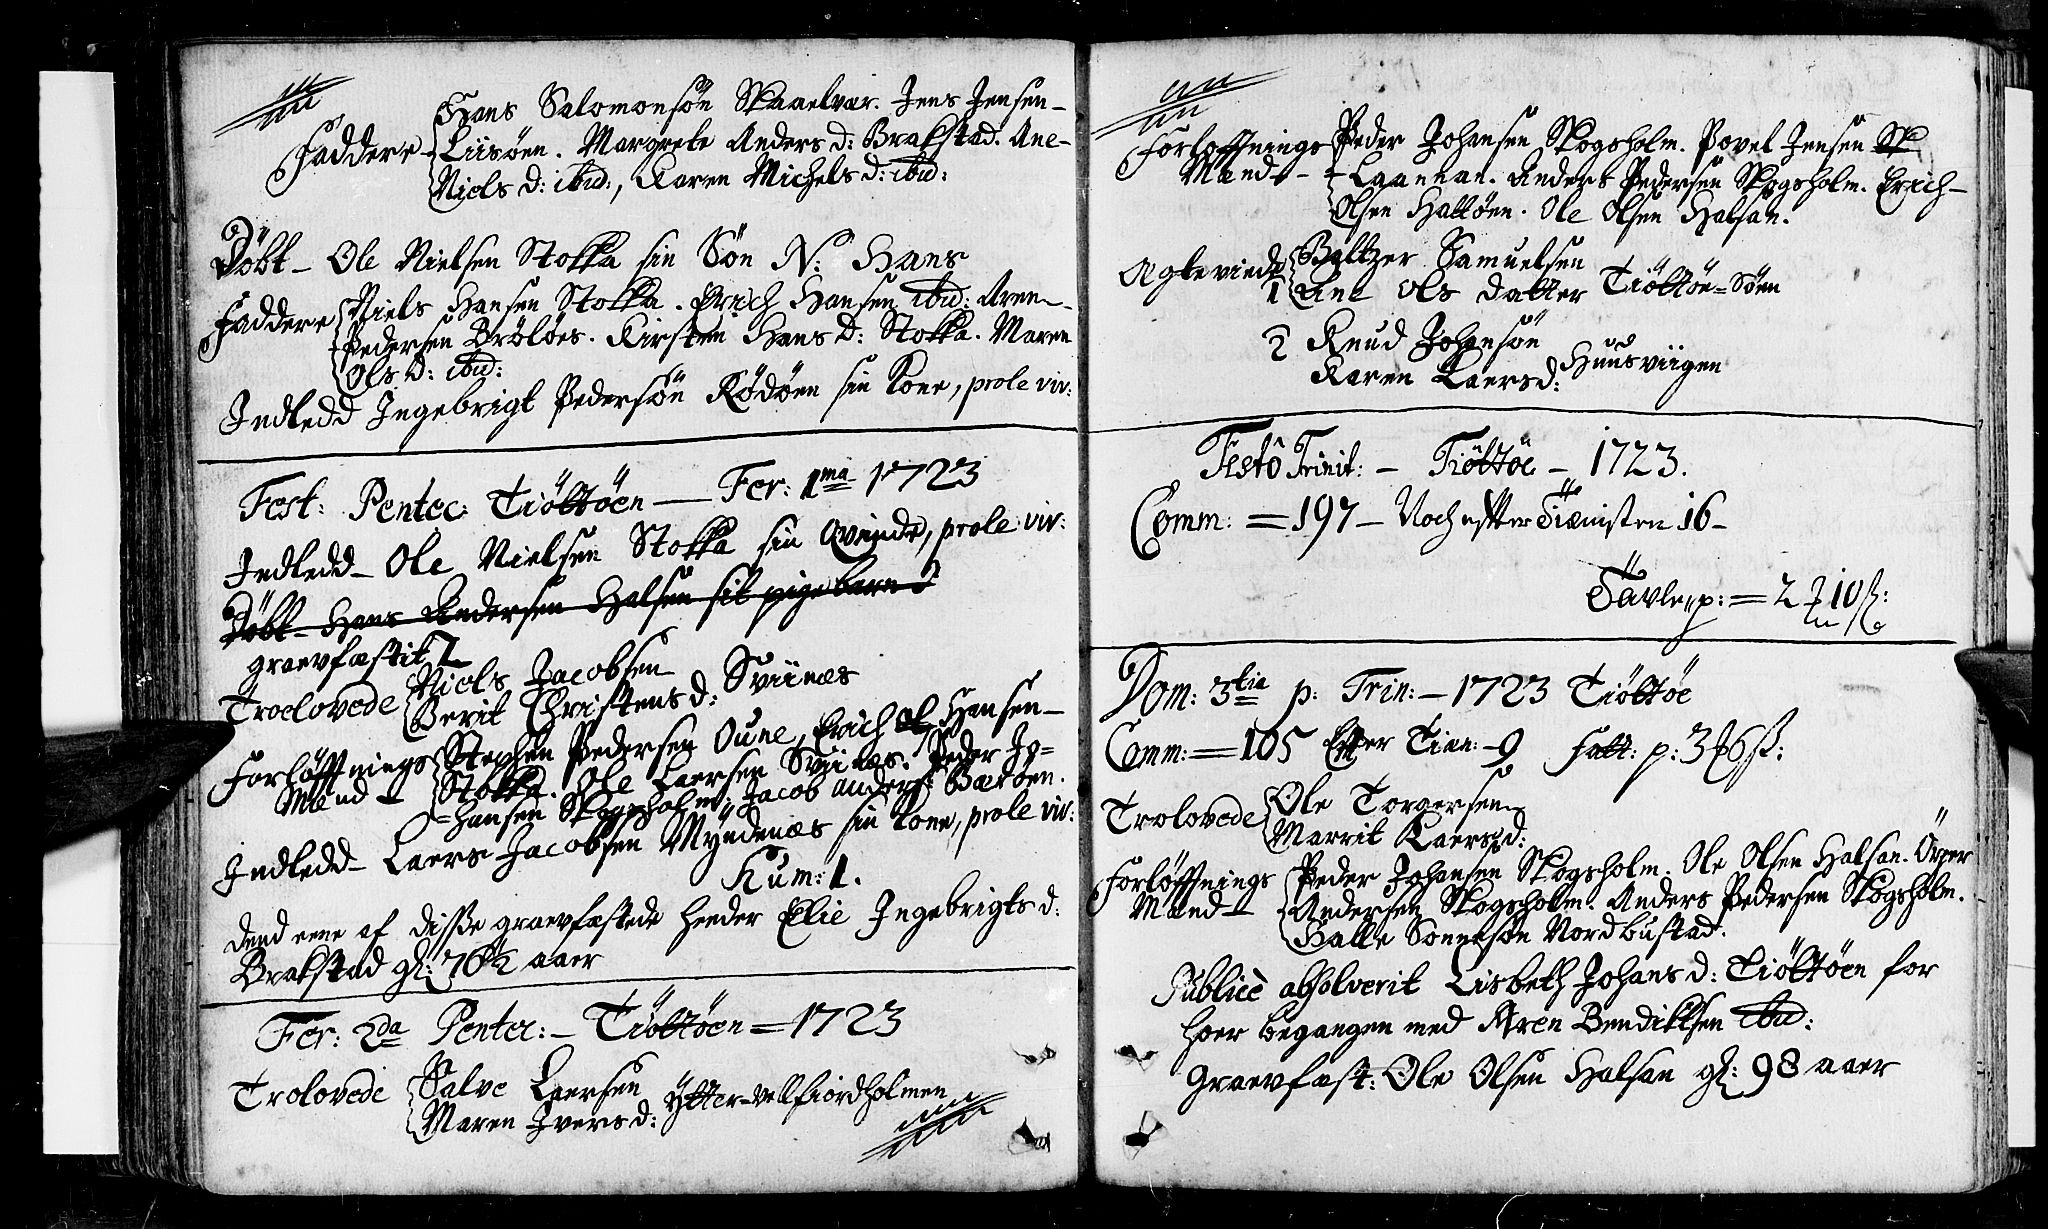 Hans Salomonsøn Skaalvær. Jens Jensen
Faddere Liisøen. Margrete Anders d: Brakstad. Ane
Niels d: ibid:, Karen Michels d: ibid:
Døbt Ole Nielsen Stokka sin Søn N: Hans
Faddere Niels Hansen Stokka. Erich Hansen ibid: Aren
Pedersen Brøløes. Kirsten Hans d: Stokka. Maren
Ols d: ibid:
Indledd Ingebrigt Pedersøn Rødøen sin Kone, prole viv:
Fest: Pentec: Tiøttøen — Fer: 1ma 1723
Indledd Ole Nielsen Stokka sin Qvinde, prole viv:
Døbt Hans Andersen Halsen sit pigebarn
graevfæstit 2
Troelovede Niels Jacobsen
Berit Christens d: Sviinæs
Forløffnings Stephen Pedersen Oune, Erich Hansen
Mænd Stokka. Ole Laersen Sviinæs. Peder Jo=
=hansen Skogsholm, Jacob Anders: Bærøen.
Indledd Laers Jacobsen Myndenæs sin Kone, prole viv:
Hum: 1.
dend eene af disse graevfæstede heeder Elie Ingebrigts d:
Brakstad gl: 76 1/2 aaer
Fer: 2da Pentec: — Tiøttøen = 1723
Trolovede Salve Laersen
Maren Ivers d: Ytter-velfiordholmen
Forløffnings Peder Johansen Skogsholm. Povel Jensen Sk
Mænd Laannan. Anders Pedersen Skogsholm. Erich
Olsen Hattøen. Ole Olsen Halsan.
Ægteviede Baltzer Samuelsen
1 Ane Ols datter Tiøttøe=Søen
2 Knud Johansøn
Karen Laersd: Huusviigen
Festô Trinit: — Tiøttøe — 1723.
Comm: = 197 — Noch efter Tiænisten 16 —
Tavle p: = 2 10 ß:
Dom: 3tia p: Trin: — 1723 Tiøttøe
Comm: = 105 Efter Tien: — 9 Fatt: p: 3 6 ß:
Trolovede Ole Torgersen
Marrit Laers d:
Forløffnings Peder Johansen Skogsholm. Ole Olsen Halsan.
Mænd Andersen Skogsholm. Anders Pedersen Skogsholm.
Halle Sønnesøn Nordbustad.
Publicè absolverit Lisbeth Johans d: Tiøttøen for
hoer begangen med Aren Bendiktsen ibid:
Graevfæst: Ole Olsen Halsan gl: 98 aaer